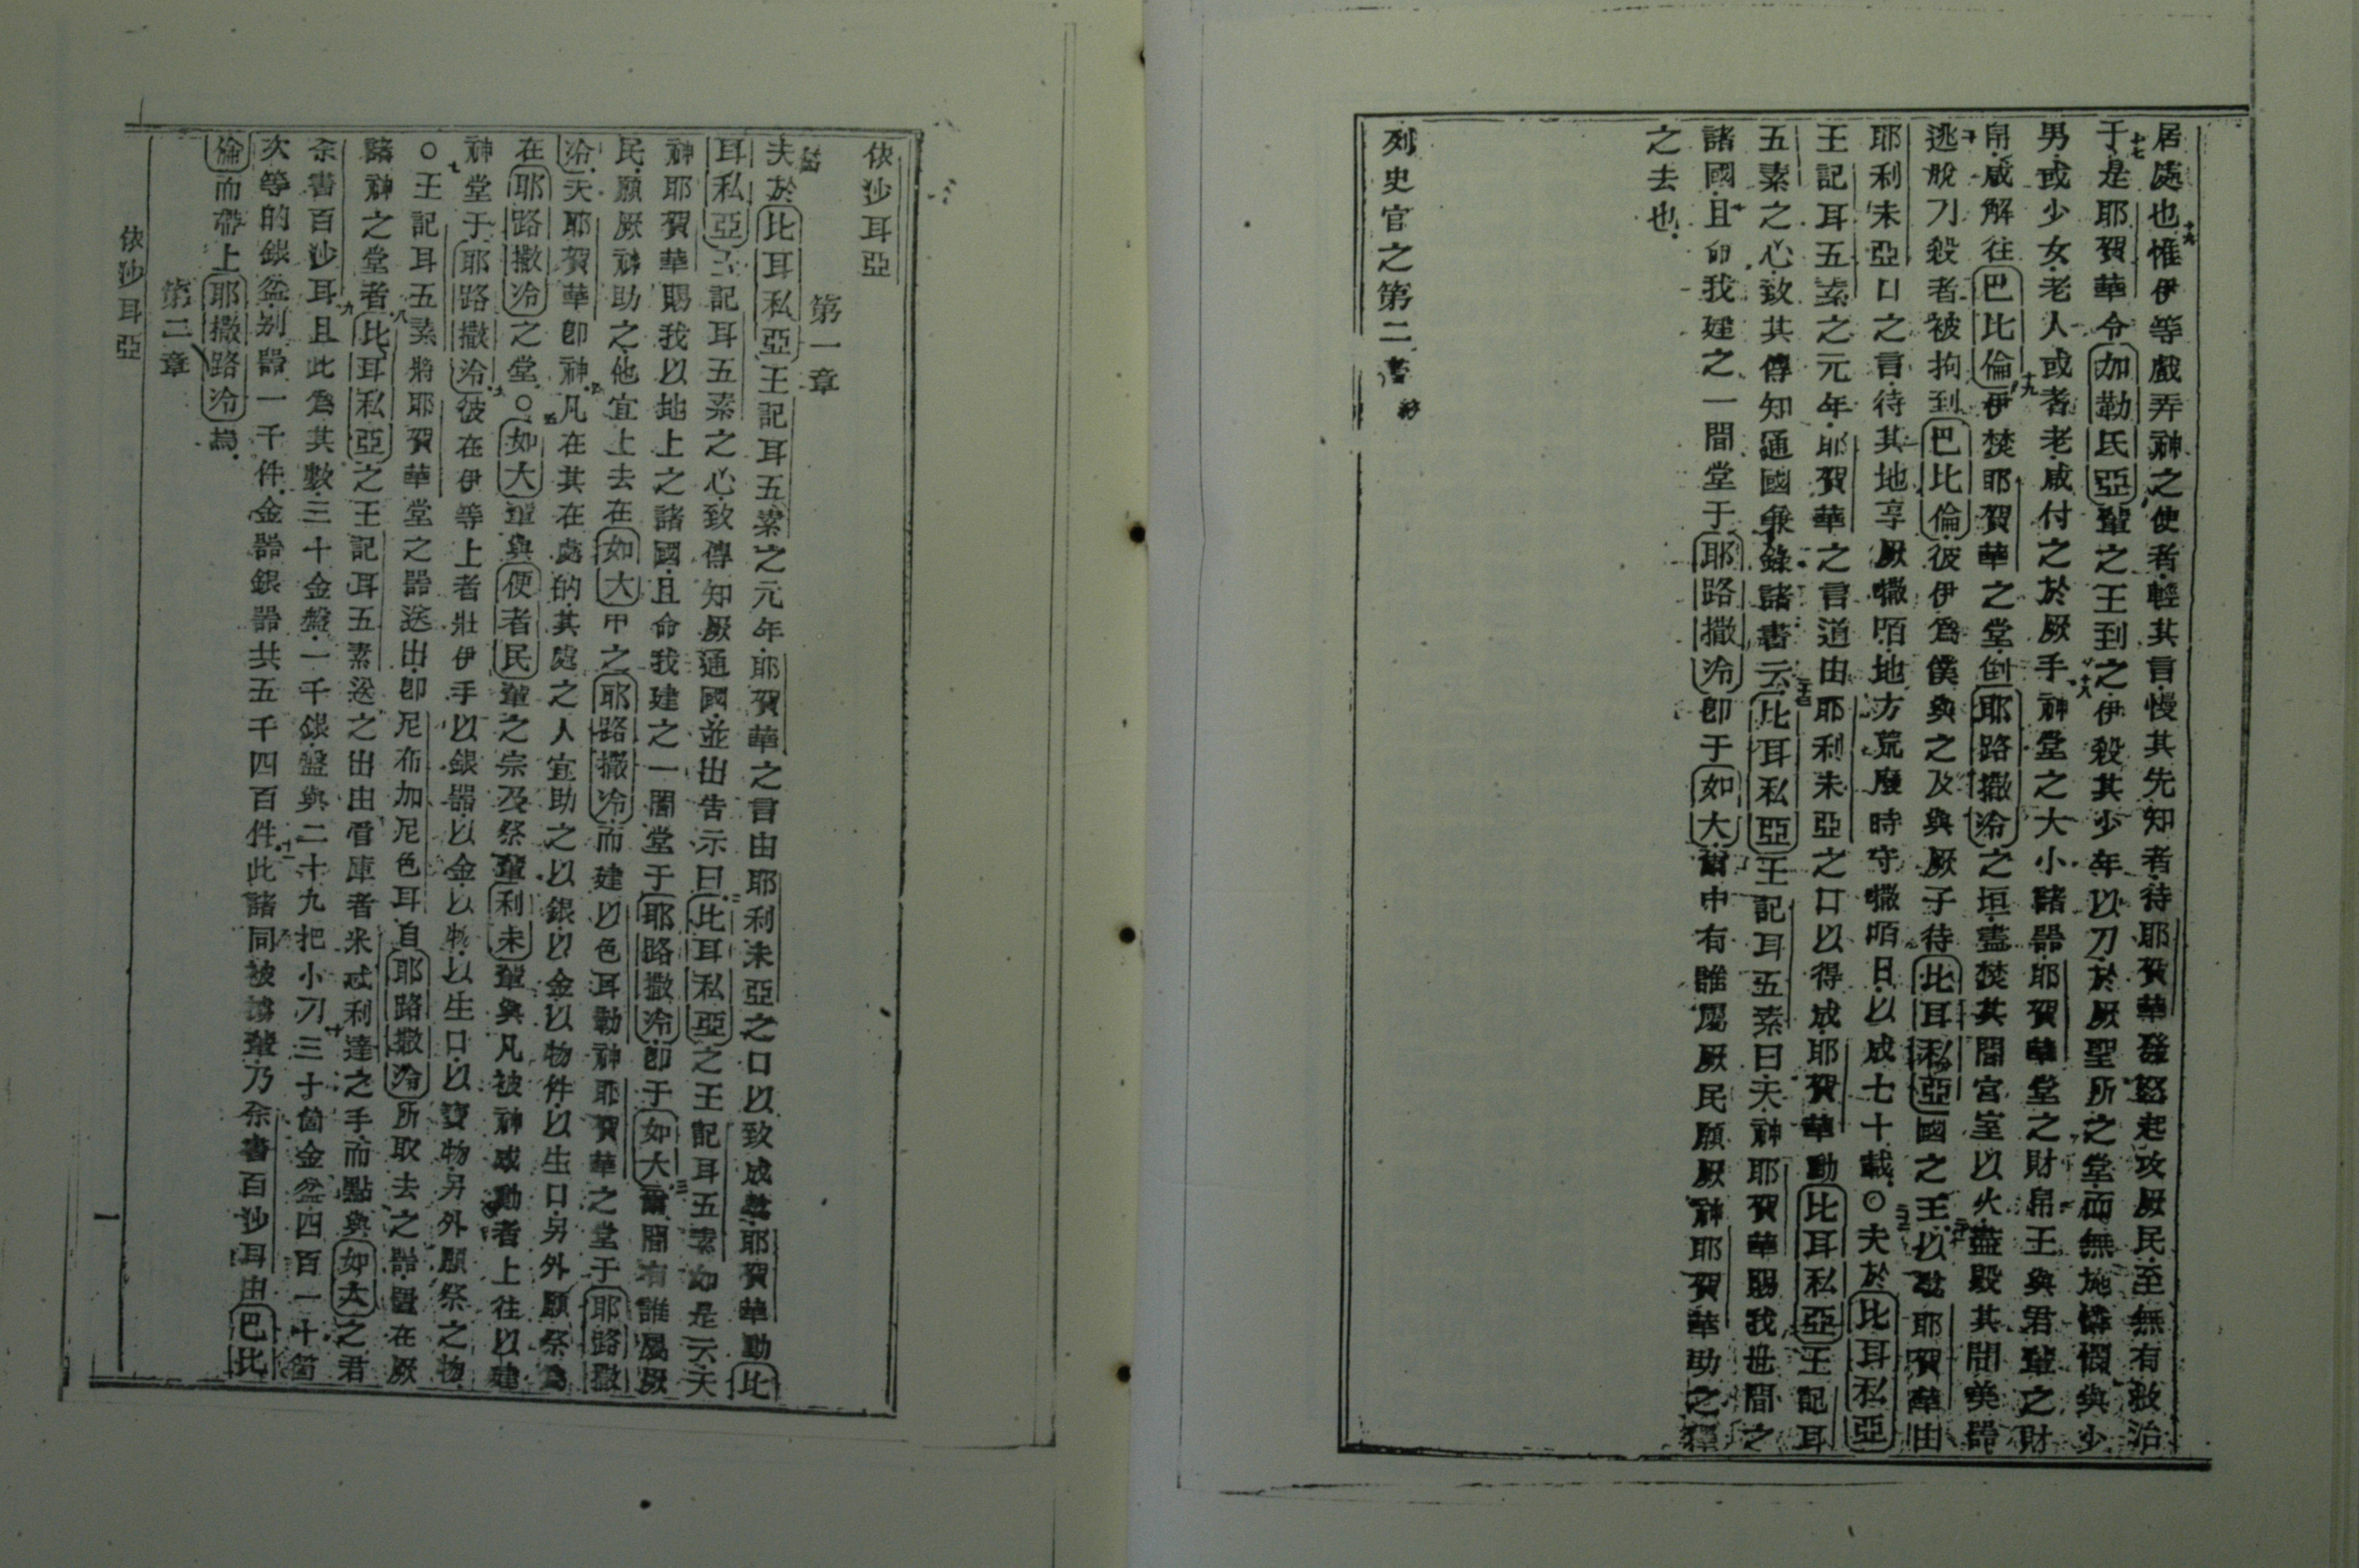 居處也惟伊等戲弄神之使者輕其言慢其先知者待耶賀華發怒起攻厥民至無有救治
于是耶賀華令加勒氏亞輩之王到之伊殺其少年以刀於厥聖所之堂而無施憐憫與少
男或少女老人或耆老咸付之於厥手神堂之大小諸器耶賀華堂之財帛王與君輩之財
帛咸解往巴比倫伊焚耶賀華之堂倒耶路撒冷之垣盡焚其間宮室以火盡毀其間美器
逃脫刀殺者被拘到巴比倫彼伊為僕與之及與厥子待比耳私亞國之王以致耶賀華由
耶利未亞口之言待其地享厥𠻳咟地方荒廢時守𠻳咟日以成七十載○夫於比耳私亞
王記耳五素之元年耶賀華之言道由耶利未亞之口以得成耶賀華動比耳私亞王記耳
五素之心致其傳知通國兼錄諸書云比耳私亞王記耳五素曰天神耶賀華賜我世間之
諸國且命我建之一間堂于耶路撒冷卽于如大爾中有誰屬厥民願厥神耶賀華助之擢
之去也
列史官之第二書 終
依沙耳亞
第一章
夫於比耳私亞王記耳五素之元年耶賀華之言由耶利未亞之口以致成就耶賀華動比
耳私亞王記耳五素之心致傳知厥通國並出告示曰比耳私亞之王記耳五素如是云天
神耶賀華賜我以地上之諸國且命我建之一間堂于耶路撒冷卽于如大爾間有誰屬厥
民願厥神助之他宜上去在如大中之耶路撒冷而建以色耳勒神耶賀華之堂于耶路撒
冷夫耶賀華卽神凡在其在處的其處之人宜助之以銀以金以物件以生口另外願祭為
在耶路撒冷之堂○如大輩與便者民輩之宗及祭輩利未輩與凡被神感動者上往以建
神堂于耶路撒冷彼在伊等上者壯伊手以銀器以金以物以生口以寶物另外願祭之物
○王記耳五素將耶賀華堂之器送出卽尼布加尼色耳自耶路撒冷所取去之器置在厥
諸神之堂者比耳私亞之王記耳五素送之出由管庫者米忒利達之手而點與如大之君
余書百沙耳且此為其數三十金盤一千銀盤與二十九把小刀三十箇金盆四百一十箇
次等的銀盆别器一千件金器銀器共五千四百件此諸同被擄輩乃余書百沙耳由巴比
倫而帶上耶撒路冷焉
第二章
依沙耳亞
一